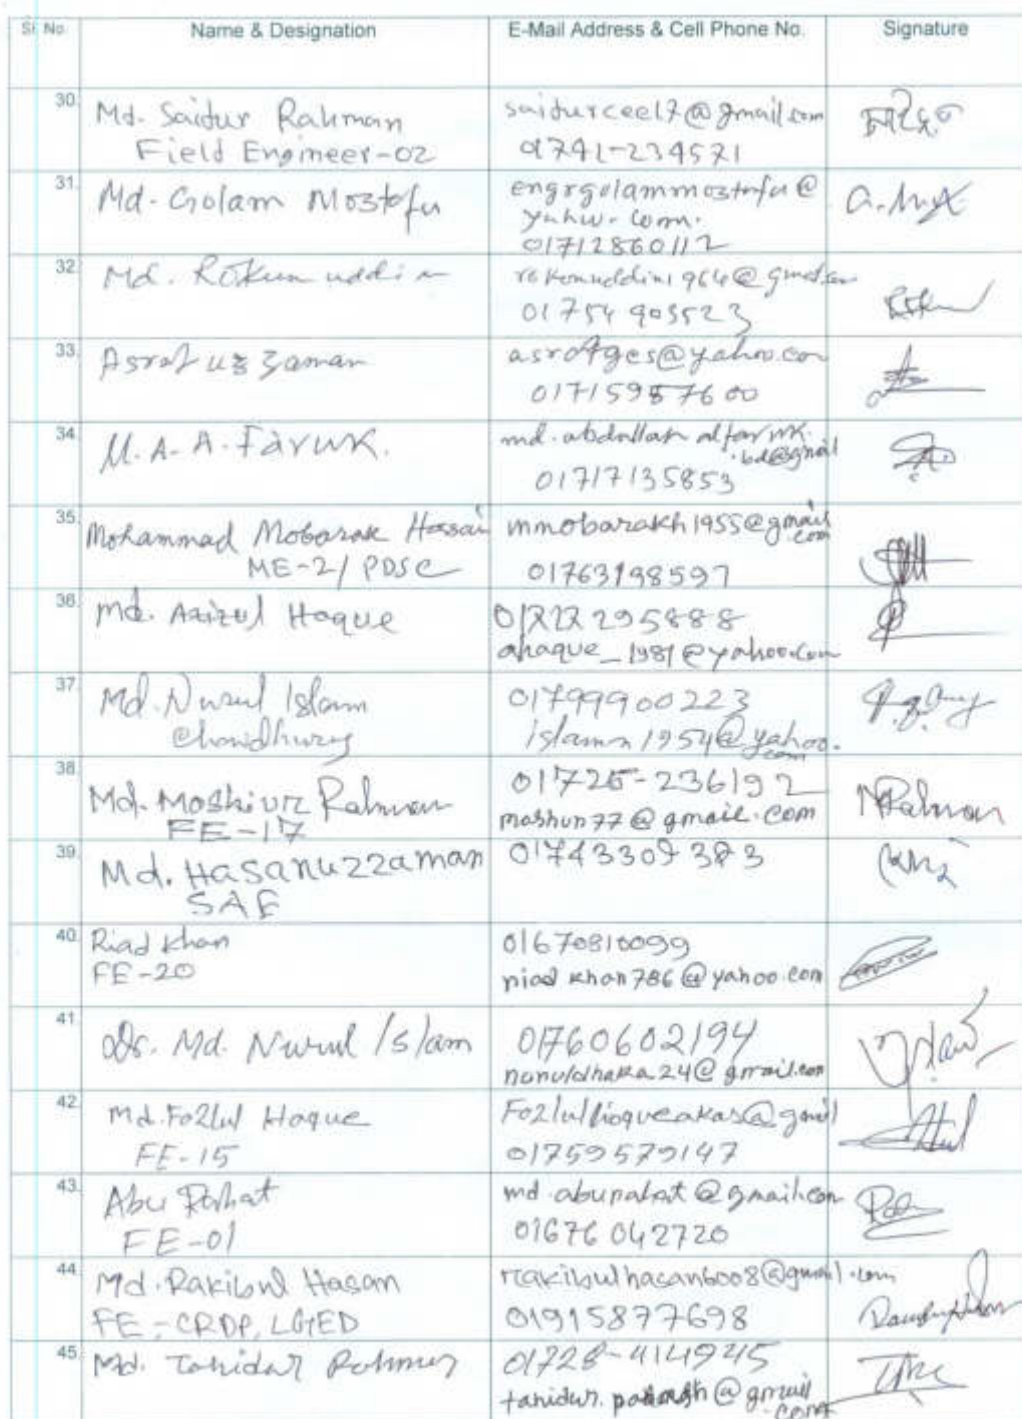 Sl No. Name & Designation E-Mail Address & Cell Phone No. Signature
30. Md. Saidur Rahman saidurcee17@gmail.com
Field Engineer-02 01741-234571
31. Md. Golam Mostofa engrgolammostofa@
yahoo.com.
01712860112
32. Md. Rokun uddin rokonuddin1964@gmail.com
01754 903523
33. Asraf uz zaman asrafges@yahoo.com
01715957600
34. M. A. A. Faruk. md.abdullah alfaruk.
.bd@gmail
01717135853
35. Mohammad Mobarak Hossain mmobarakh1955@gmail
.com
ME-2/ PDSC 01763198597
36. Md. Azizul Haque 295888
ahaque_1981@yahoo.com
37. Md. Nurul Islam 01799900223
Chowdhury islamn1954@yahoo.
com
38. Md. Moshiur Rahman 01725-236192
FE-17 moshun77@gmail.com
MRahman
39. Md. Hasanuzzaman 01743309383
SAE
40. Riad Khan 01670810099
FE-20 riad khan786@yahoo.com
41. Dr. Md. Nurul Islam 01760602194
nuruldhaka24@gmail.com
42. Md. Fozlul Haque Fozlulhoqueakas@gmail
FE-15 01759579147
43. Abu Rahat md.aburahat@gmail.com
FE-01 01676042720
44. Md. Rakibul Hasan rakibulhasan6008@gmail.com
FE-CRDP, LGED 01915877698
45. Md. Tahidur Rahman 01728-414945
@gmail
.com